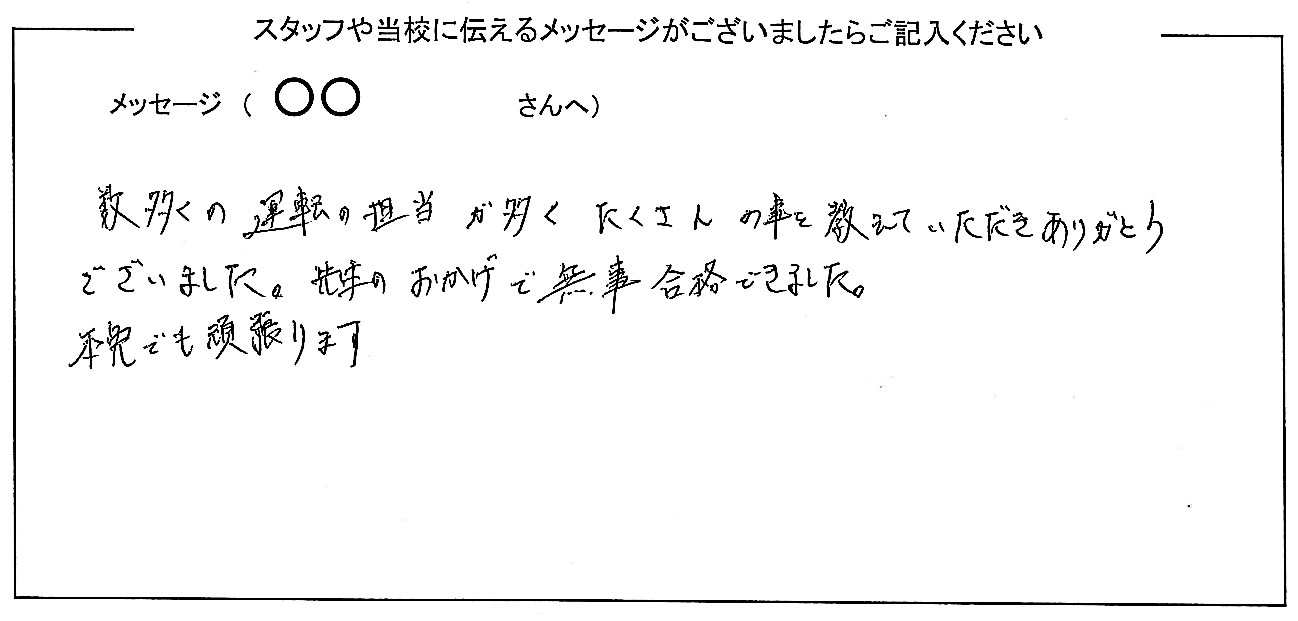 スタッフや当校に伝えるメッセージがございましたらご記入ください
メッセージ ( 〇〇 さんへ)
数多くの運転の担当が多くたくさんの事を教えていただきありがとう
ございました。先生のおかげで無事合格できました。
本免でも頑張ります